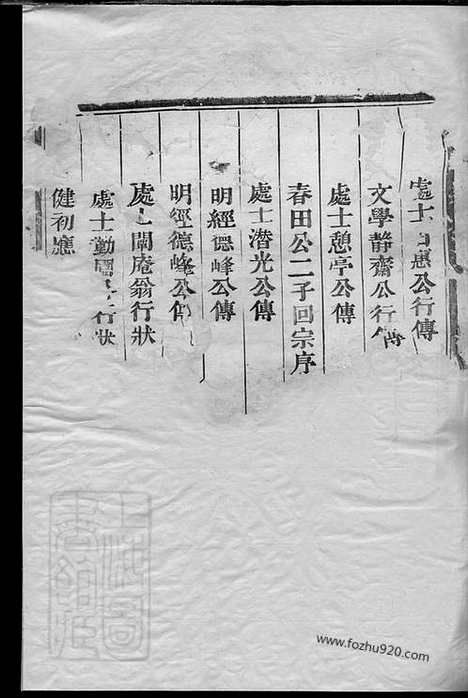 處士惠公行傳
文學靜齋公行傳
處士憩亭公傳
春田公二子回宗序
處士潛光公傳
明經德峰公傳
明經德峰公傳
處士闇庵翁行狀
處士勤行狀
健初應
www.fozhu920.com